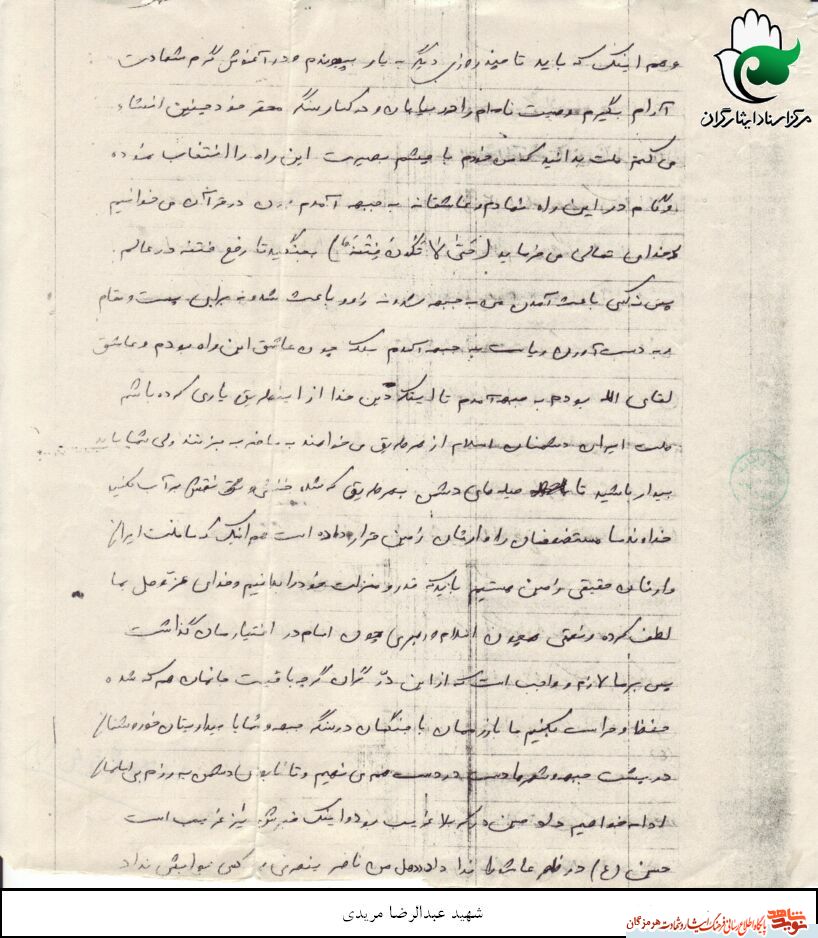 و هم اینک که باید تا میندوزی دیگر به یار بپیوندم و در آغوش گرم شهادت
آرام بگیرم وصیت نامه‌ام را در بیابان و در کنار سنگر محقر خود چنین انشاء
می کنم ملت بدانید که من خودم با چشم بصیرت این راه را انتخاب نموده
و گام در این راه نهادم و عاشقانه به جبهه آمدم چون در قرآن می خوانیم
که خدای تعالی می فرماید (حَتّیٰ لا تَکُونَ فِتْنَةٌ) بجنگید تا رفع فتنه در عالم.
پس نه کسی باعث آمدن من به جبهه شده نه زور و باعث شد و نه برای پست و مقام
و به دست آوردن ریاست به جبهه آمدم بلکه چون عاشق این راه بودم و عاشق
لقای الله بودم به جبهه آمدم تا اینکه دین خدا از اینطریق یاری کرده باشم
ملت ایران دشمنان اسلام از هر طریق می خواهند به ما ضربه بزنند ولی شما باید
بیدار باشید تا حیله های دشمن بهر طریق که شده خنثی و نقش بر آب کنید
خداوند ما مستضعفان را وارثان زمین قرار داده است هم اینک که ما ملت ایران
وارثان حقیقی زمین هستیم باید که قدر و منزلت خود را بدانیم و خدای عزّوجل بما
لطف کرده و نعمتی همچون اسلام و رهبری چون امام در اختیارمان گذاشت
پس بر ما لازم و واجب است که از این درّ گران گرچه با قیمت جانمان هم که شده
حفظ و حراست بکنیم ما با رزممان با جنگمان در سنگر جبهه و شما با بیداریتان خودتان
در پشت جبهه و شهرها دست در دست هم می نهیم و تا نابودی دشمن به رزم بی امانمان
ادامه خواهیم داد حسین در کربلا غریب بود و اینک فرزندش نیز غریب است
حسین (ع) در ظهر عاشورا ندا داد هل من ناصر ینصرنی و کسی جوابش نداد
مرکز اسناد ایثارگران
شهید عبدالرضا مریدی
نوید شاهد
پایگاه اطلاع رسانی فرهنگ ایثار و شهادت هرمزگان